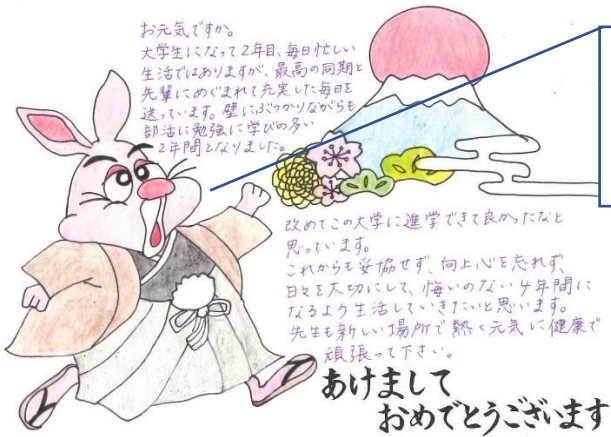 お元気ですか。
大学生になって2年目、毎日忙しい
生活ではありますが、最高の同期と
先輩にめぐまれて充実した毎日を
送っています。壁にぶつかりながらも
部活に勉強に学びの多い
2年間となりました。
改めてこの大学に進学できて良かったなと
思っています。
これからも妥協せず、向上心を忘れず、
日々を大切にして、悔いのない4年間に
なるよう生活していきたいと思います。
先生も新しい場所で熱く元気に健康で
頑張って下さい。
あけまして
おめでとうございます